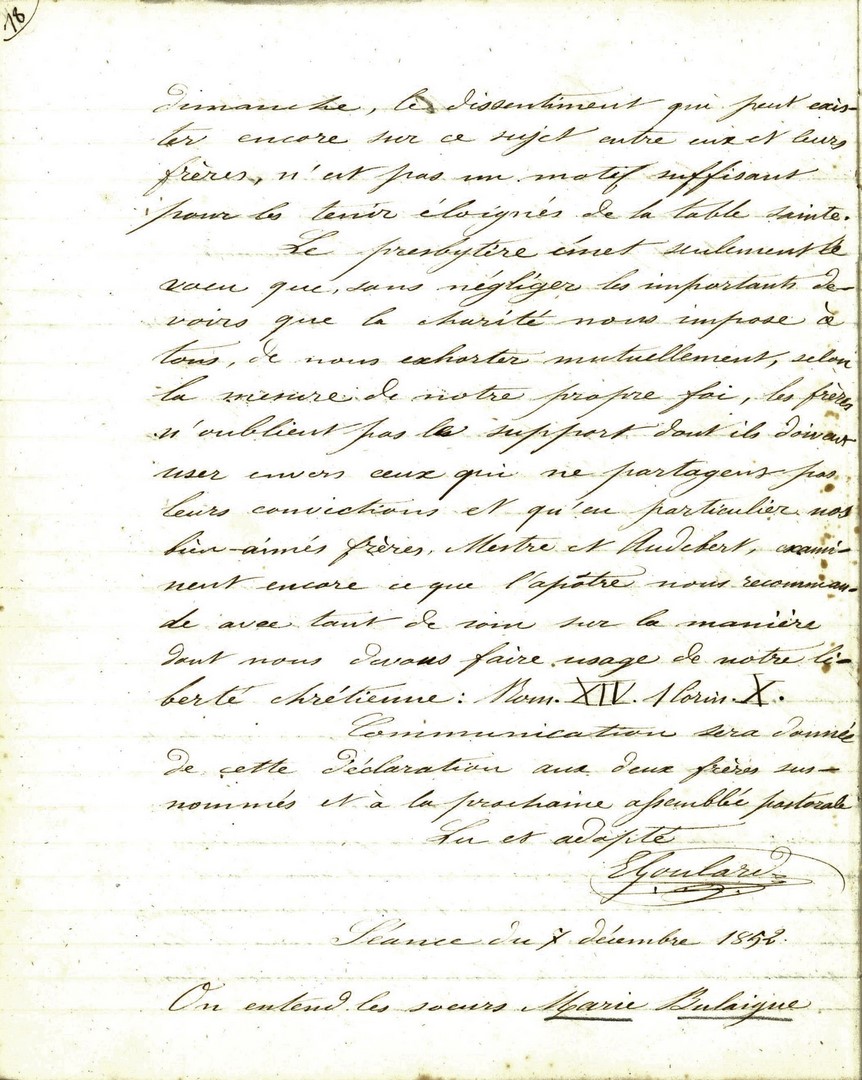 18
dimanche, le dissentiment qui peut exis-
ter encore sur ce sujet entre eux et leurs
frères, n'est pas un motif suffisant
pour les tenir éloignés de la table sainte.
Le presbytère émet seulement le
voeu que, sans négliger les importants de-
voirs que la charité nous impose à
tous, de nous exhorter mutuellement, selon
la mesure de notre propre foi, les frères
n'oublient pas le support dont ils doivent
user envers ceux qui ne partagent pas
leurs convictions et qu'en particulier nos
bien-aimés frères, Mestre et Audebert, exami-
nent encore ce que l'apôtre nous recomman-
de avec tant de soin sur la manière
dont nous devons faire usage de notre li-
berté chrétienne: Rom. XIV. 1 Corin. X.
Communication sera donnée
de cette déclaration aux deux frères sus-
nommés et à la prochaine assemblée pastorale
Lu et adopté
EGoulard
Séance du 7 décembre 1852.
On entend les soeurs Marie Bulaigue